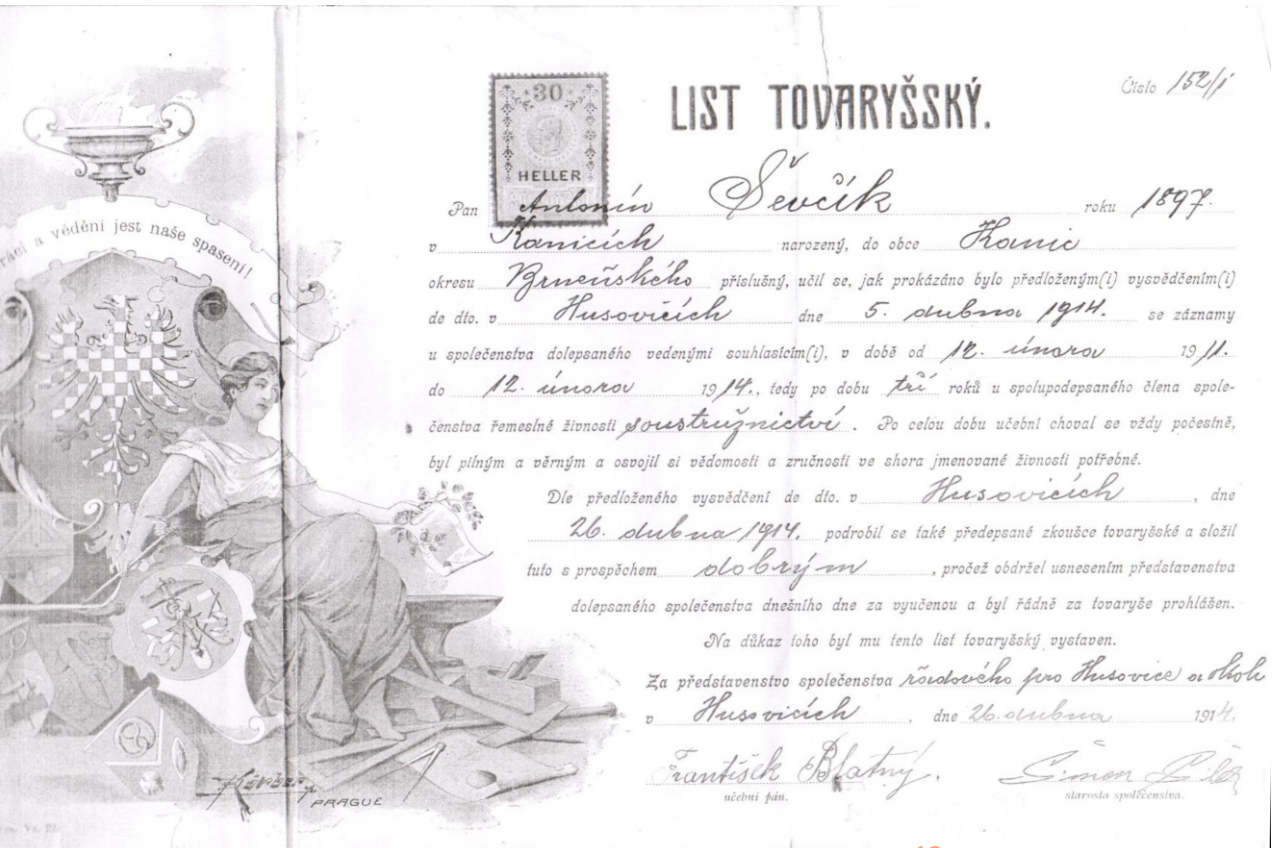 LIST TOVARYŠSKÝ.
Číslo 152/I
30
HELLER
Pan Antonín Ševčík roku 1897.
v Kanicích narozený, do obce Kanic
okresu Brněnského příslušný, učil se, jak prokázáno bylo předloženým(i) vysvědčením(i)
de dto. v Husovicích dne 5. dubna 1914. se záznamy
u společenstva dolepsaného vedenými souhlasícím(i), v době od 12. února 1911.
do 12. února 1914., tedy po dobu tří roků u spolupodepsaného člena spole-
čenstva řemeslné živnosti soustružnictví. Po celou dobu učební choval se vždy počestně,
byl pilným a věrným a osvojil si vědomosti a zručnosti ve shora jmenované živnosti potřebné.
Dle předloženého vysvědčení de dto. v Husovicích, dne
26. dubna 1914. podrobil se také předepsané zkoušce tovaryšské a složil
tuto s prospěchem dobrým, pročež obdržel usnesením představenstva
dolepsaného společenstva dnešního dne za vyučenou a byl řádně za tovaryše prohlášen.
Na důkaz toho byl mu tento list tovaryšský vystaven.
Za představenstvo společenstva řádového pro Husovice a okolí
v Husovicích, dne 26. dubna 1914.
František Blatný.
učební pán.
Šimon
starosta společenstva.
práci a vědění jest naše spasení!
PRAGUE